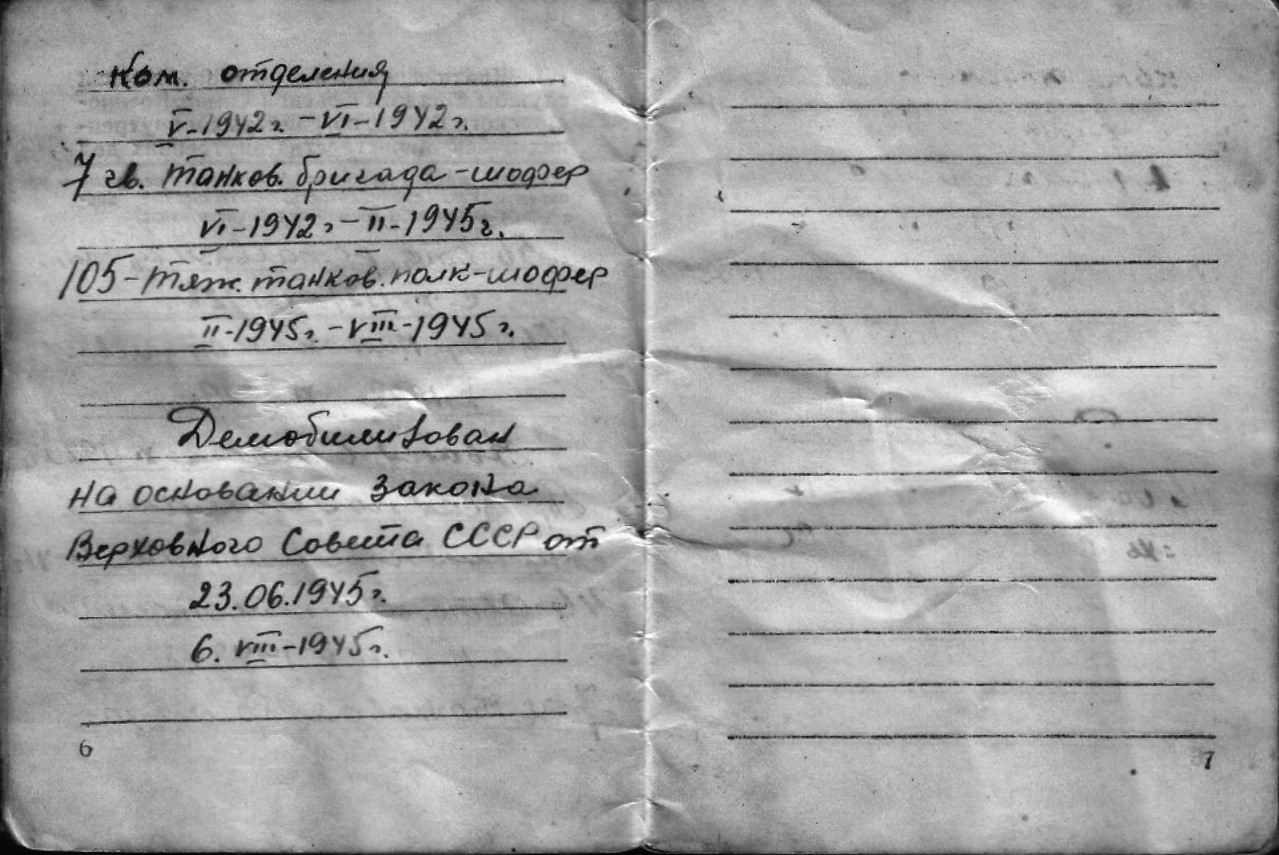 Ком. отделения
V-1942г. - VI-1942г.
7 гв. танков. бригада - шофер
VI-1942г - II-1945г.
105 - тяж. танков. полк - шофер
II-1945г. - VIII-1945г.
Демобилизован
на основании закона
Верховного Совета СССР от
23.06.1945г.
6. VIII-1945г.
6
7